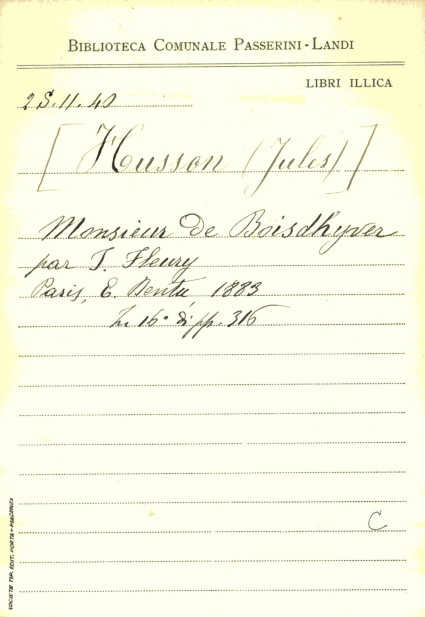 BIBLIOTECA COMUNALE PASSERINI-LANDI
LIBRI ILLICA
2 S. 11. 40
[Husson (Jules)]
Monsieur de Boisdhyver
par J. Fleury
Paris, E. Dentu, 1883
in 16° di pp. 316
C
SOCIETÀ TIP. EDIT. PORTA - PIACENZA